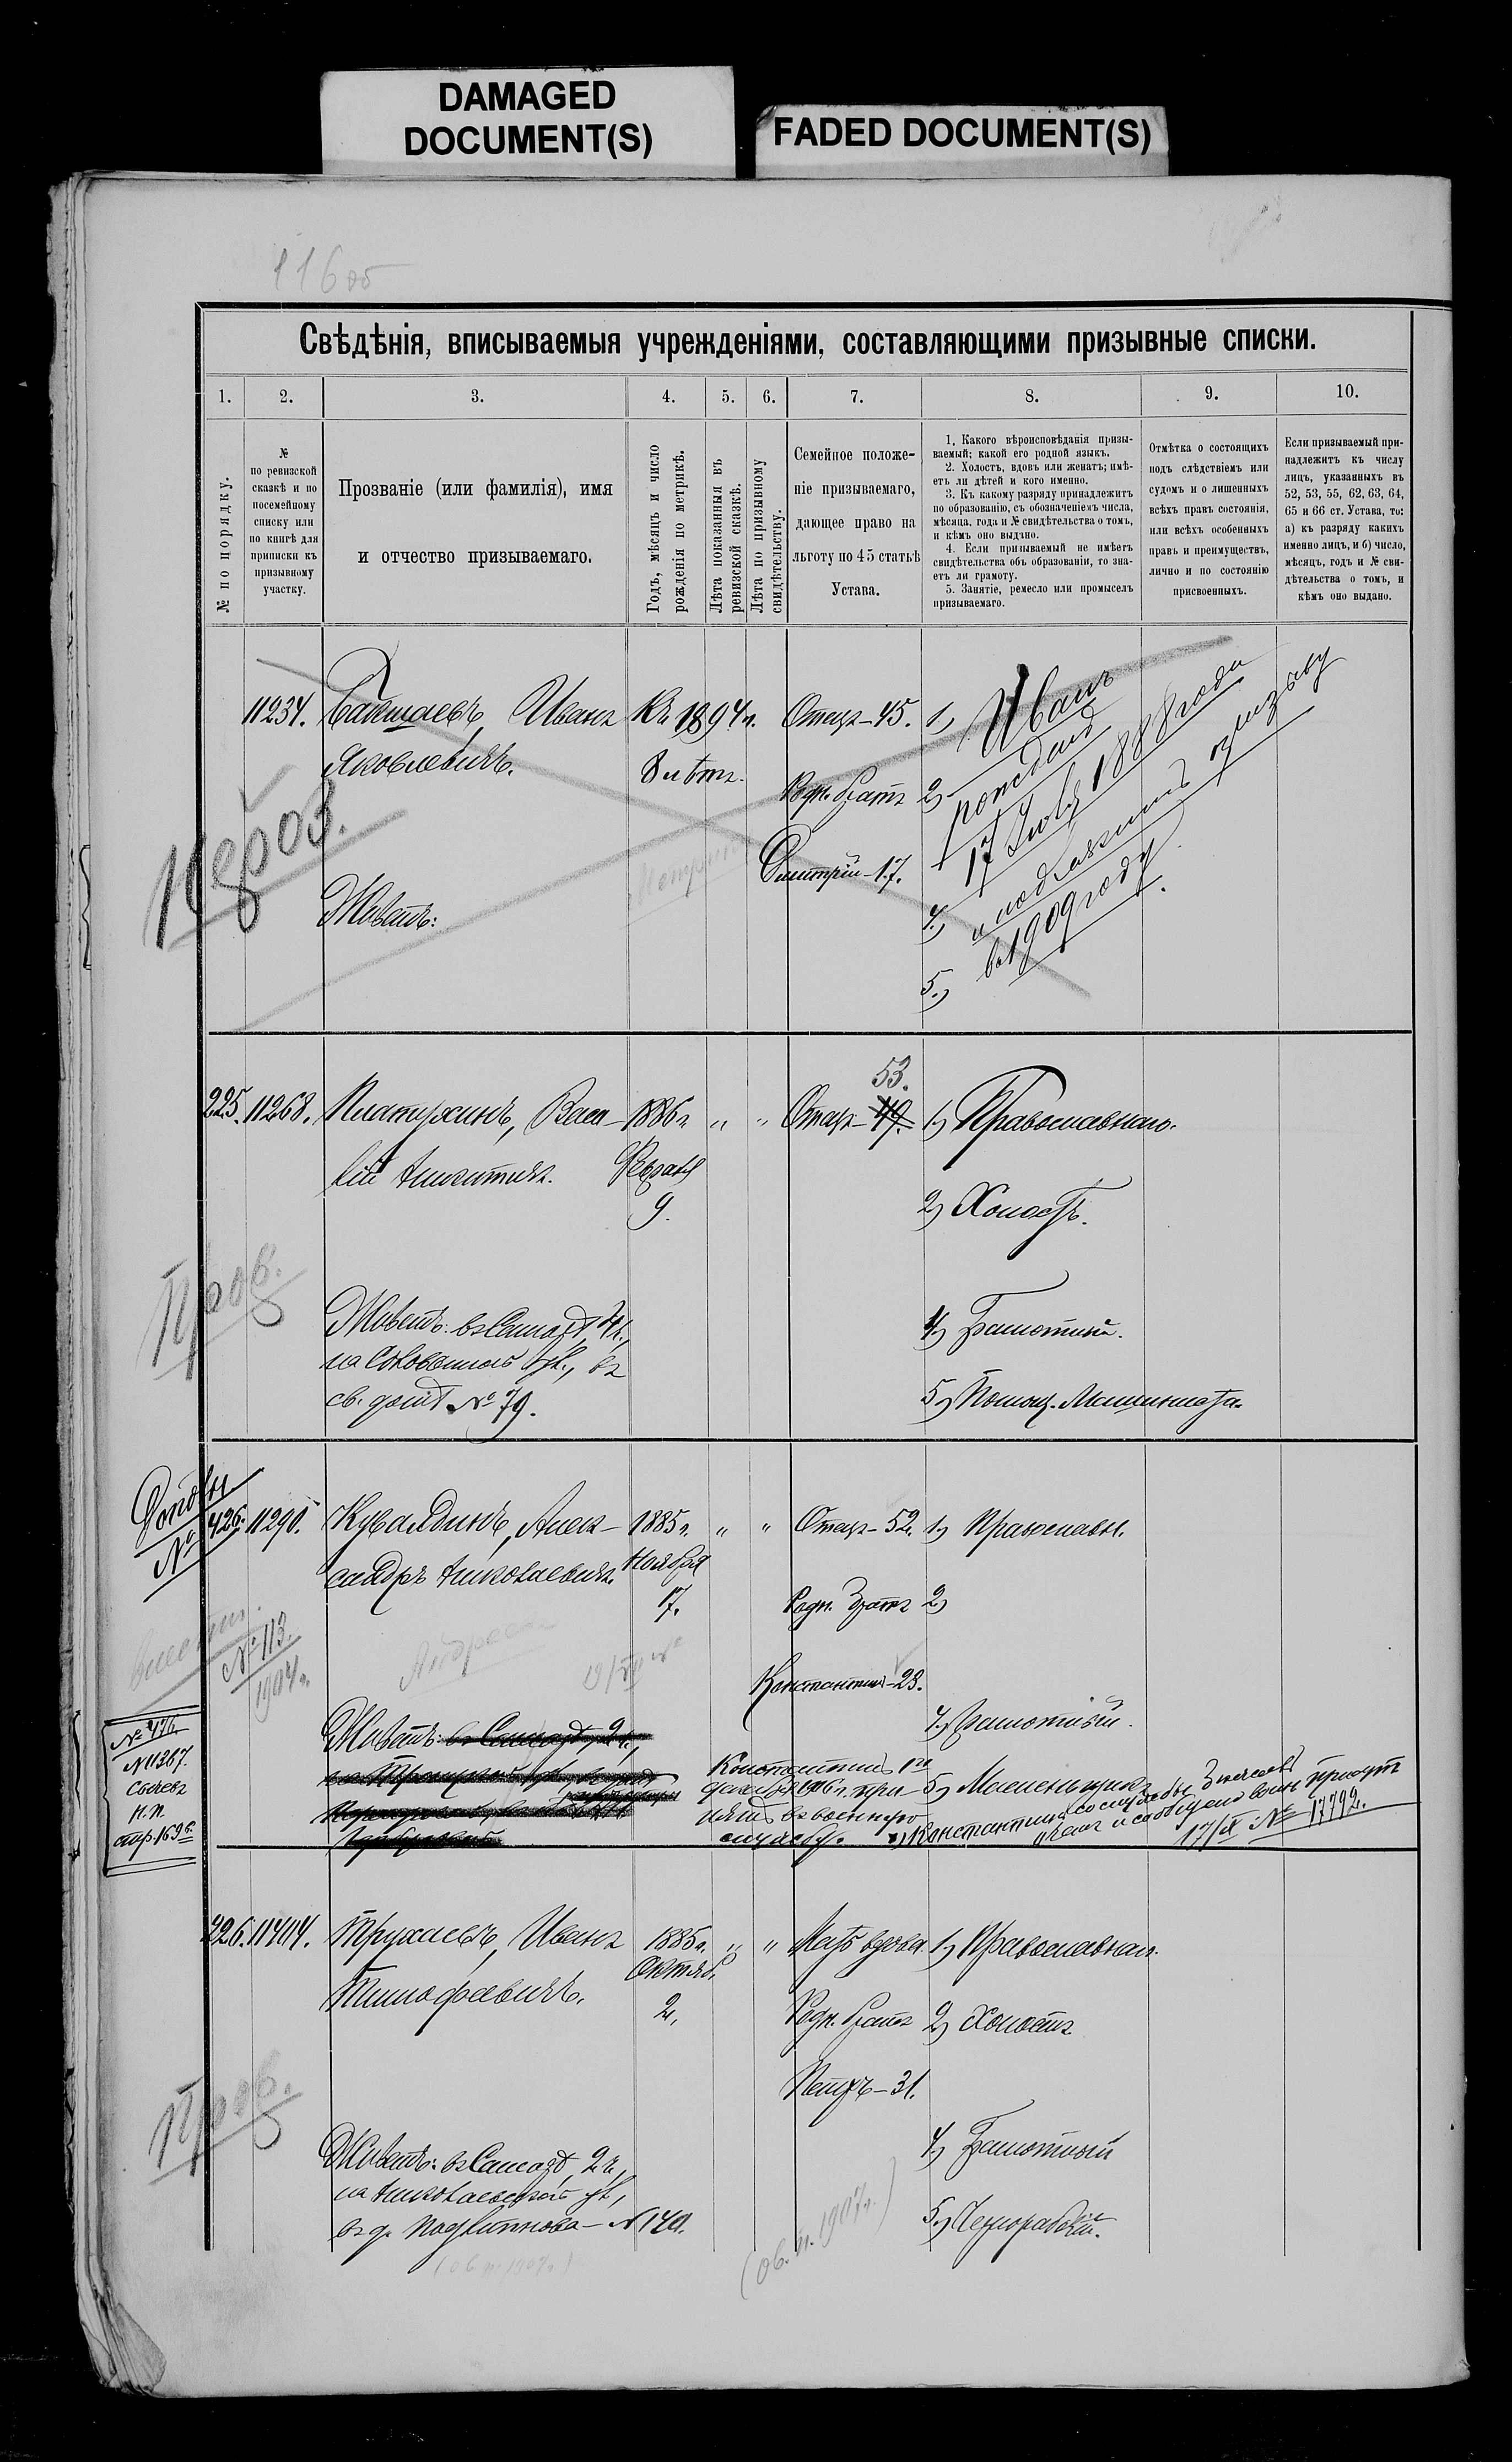 DAMAGED
DOCUMENT(S)
FADED DOCUMENT(S)
116об
Свѣдѣнія, вписываемыя учрежденіями, составляющими призывные списки.
1. 2. 3. 4. 5. 6. 7. 8. 9. 10.
№ по порядку.
№
по ревизской
сказкѣ и по
посемейному
списку или
по книгѣ для
приписки къ
призывному
участку.
Прозваніе (или фамилія), имя
и отчество призываемаго.
Годъ, мѣсяцъ и число
рожденія по метрикѣ.
Лѣта показанныя въ
ревизской сказкѣ.
Лѣта по призывному
свидѣтельству.
Семейное положе-
ніе призываемаго,
дающее право на
льготу по 45 статьѣ
Устава.
1. Какого вѣроисповѣданія призы-
ваемый; какой его родной языкъ.
2. Холостъ, вдовъ или женатъ; имѣ-
етъ ли дѣтей и кого именно.
3. Къ какому разряду принадлежитъ
по образованію, съ обозначеніемъ числа,
мѣсяца, года и № свидѣтельства о томъ,
и кѣмъ оно выдано.
4. Если призываемый не имѣетъ
свидѣтельства объ образованіи, то зна-
етъ ли грамоту.
5. Занятіе, ремесло или промыселъ
призываемаго.
Отмѣтка о состоящихъ
подъ слѣдствіемъ или
судомъ и о лишенныхъ
всѣхъ правъ состоянія,
или всѣхъ особенныхъ
правъ и преимуществъ,
лично и по состоянію
присвоенныхъ.
Если призываемый при-
надлежитъ къ числу
лицъ, указанныхъ въ
52, 53, 55, 62, 63, 64,
65 и 66 ст. Устава, то:
а) къ разряду какихъ
именно лицъ, и б) число,
мѣсяцъ, годъ и № сви-
дѣтельства о томъ, и
кѣмъ оно выдано.
11234. Иванъ
Яковлевичъ.
Къ 1894 г.
8 лѣтъ.
Отецъ-45.
Родн. братъ
Дмитрій-17.
1)
2)
4.)
5.)
Иванъ
рожденъ
17 Іюля 1888 года
и подлежитъ призыву
въ 1909 году
Живетъ:
225. 11268. Васи-
лій Никитичъ.
1886 г.
Февраля
9.
" "
53.
Отецъ-49.
1) Православнаго.
2) Холостъ.
4) Грамотный.
5) Помощ. Машиниста.
Пров.
Живетъ: въ Самарѣ, 4 ч.,
на Соловьиной ул., въ
св. домѣ № 79.
Дополн
№ 426.
11290. Кувалдинъ, Алек-
сандръ Николаевичъ.
1885 г.
Ноября
17.
" "
Отецъ-52.
Родн. братъ
Константинъ-28.
1) Православн.
2)
4.) Грамотный.
№ 113.
1904 г.
Живетъ: въ Самарѣ, 2 ч.,
Константинъ 1го
декабря 1906 г. при-
нятъ въ военную
службу.
№ 476
№ 11267.
стр. 169 б.
17/IX № 17792.
226. 11404. Трухачевъ, Иванъ
Тимофеевичъ.
1885 г.
Октяб.
2.
" "
Мать вдова.
Родн. братъ
Петръ-31.
1) Православнаго.
2) Холостъ
4) Грамотный
5.) Чернорабочій.
Пров.
Живетъ: въ Самарѣ, 2 ч.,
на Николаевской ул.,
(об. п. 1907 г.)